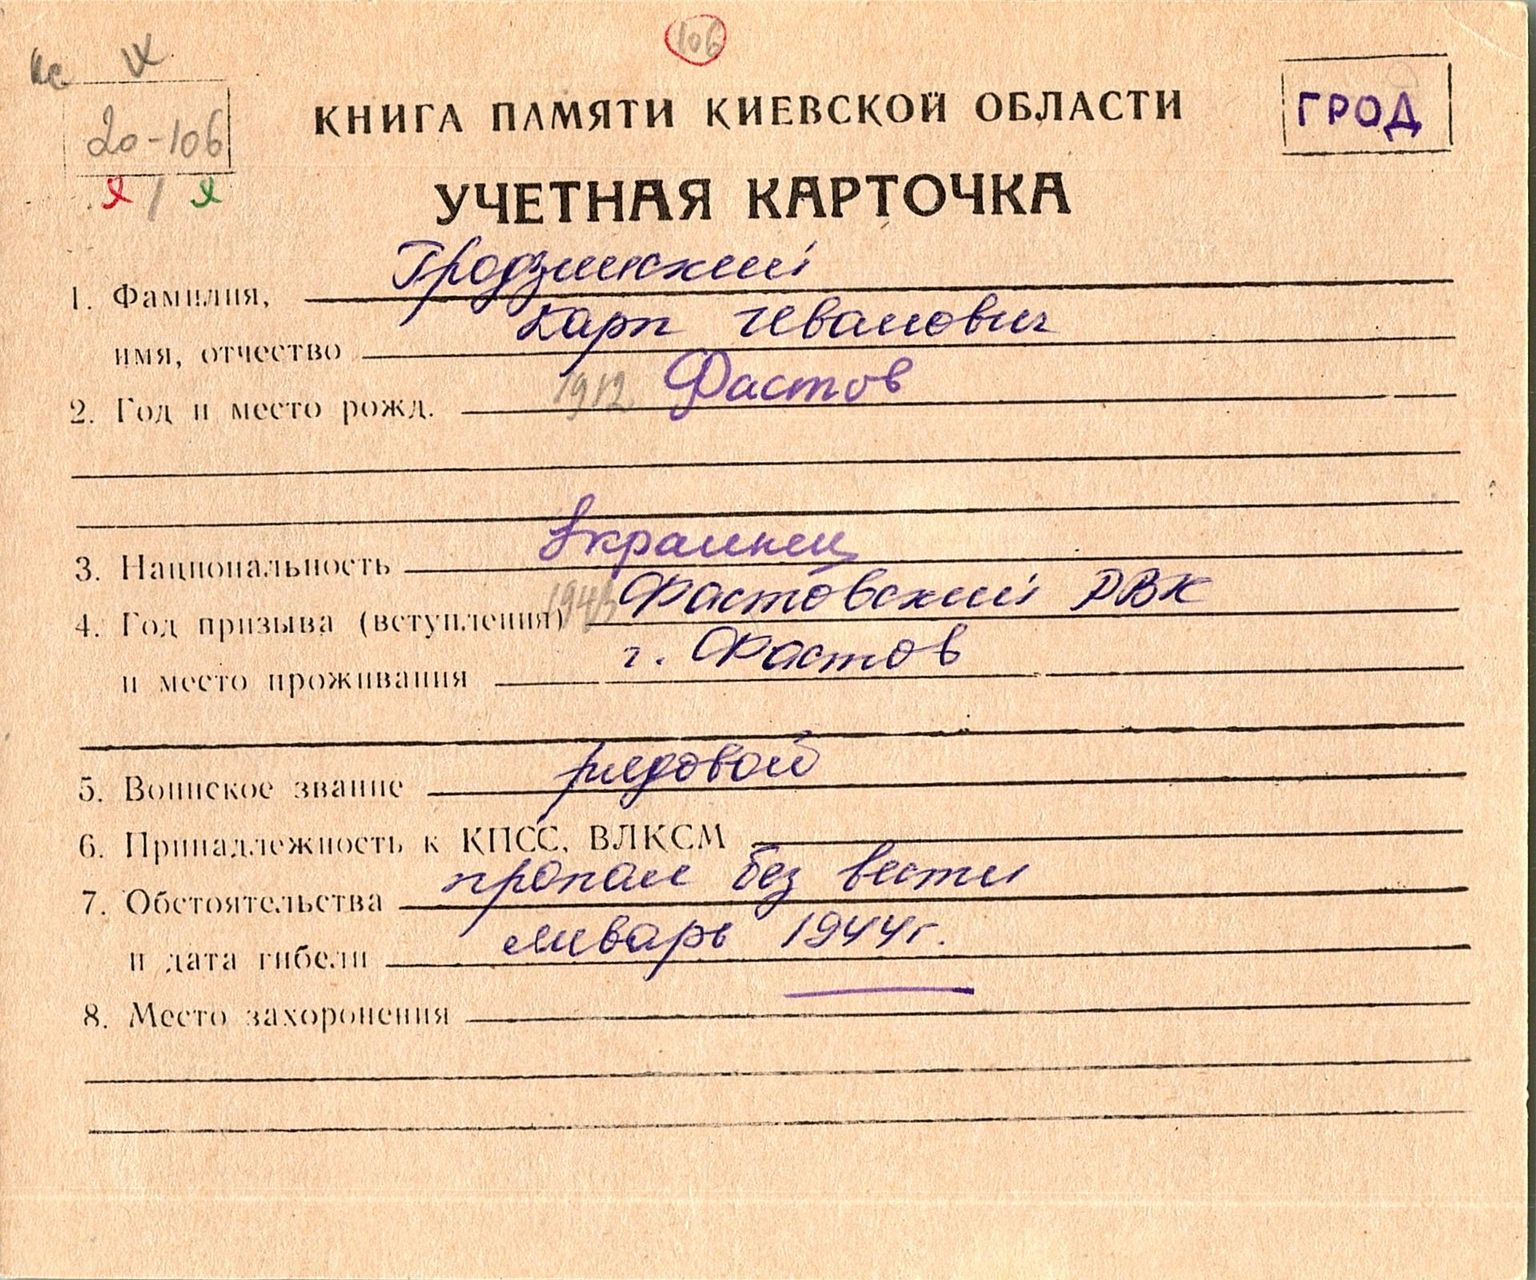 106
20-106
КНИГА ПАМЯТИ КИЕВСКОЙ ОБЛАСТИ
ГРОД
УЧЕТНАЯ КАРТОЧКА
1. Фамилия, Гродзинский
имя, отчество Карп Иванович
2. Год и место рожд. 1912 Фастов
3. Национальность Украинец
4. Год призыва (вступления) 1943 Фастовский РВК
и место проживания г. Фастов
5. Воинское звание рядовой
6. Принадлежность к КПСС, ВЛКСМ
7. Обстоятельства пропал без вести
и дата гибели январь 1944г.
8. Место захоронения